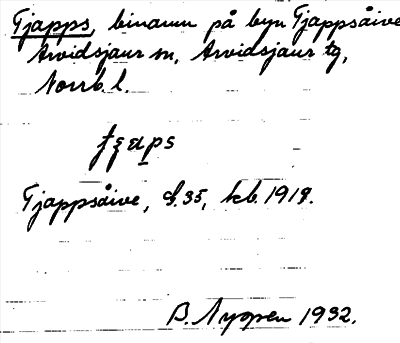 Tjapps, binamn på byn Tjappsåive
Arvidsjaur sn, Arvidsjaur tg,
Norrb. l.
Tjappsåive, d. 35, kb. 1919.
B. Nygren 1932.